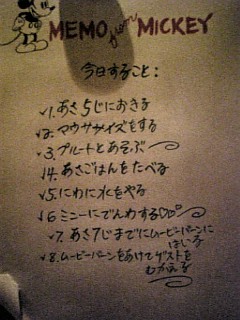 MEMO from MICKEY
今日すること：
✓1. あさ5じにおきる
✓2. マウササイズをする
✓3. プルートとあそぶ
✓4. あさごはんをたべる
✓5. にわに水をやる
✓6 ミニーにでんわする♡♡
✓7. あさ7じまでにムービーバーンに
はいる
✓8. ムービーバーンをあけてゲストを
むかえる